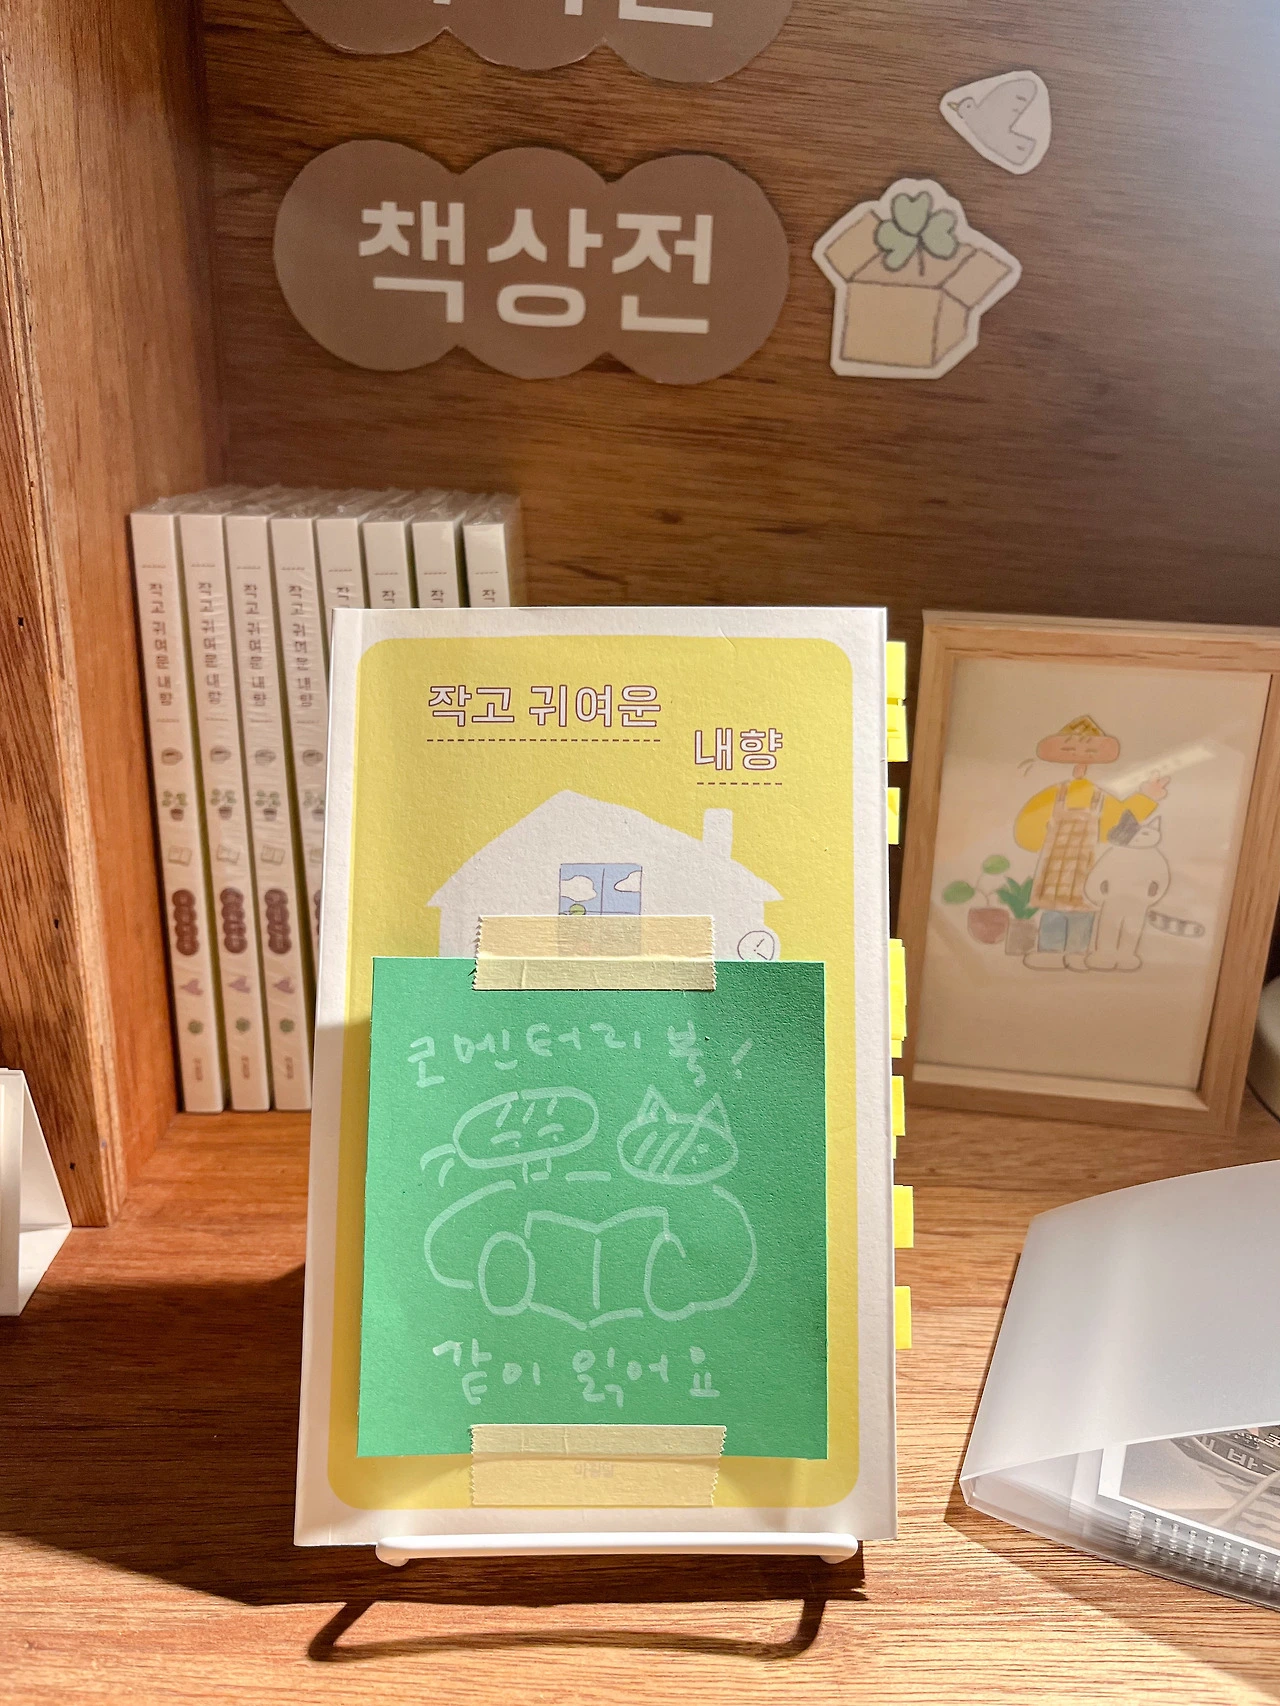 책상전
작고 귀여운 내향
작고 귀여운 내향
작고 귀여운 내향
작고 귀여운 내향
작
작
작
작
작고 귀여운
내향
코멘터리 북!
같이 읽어요